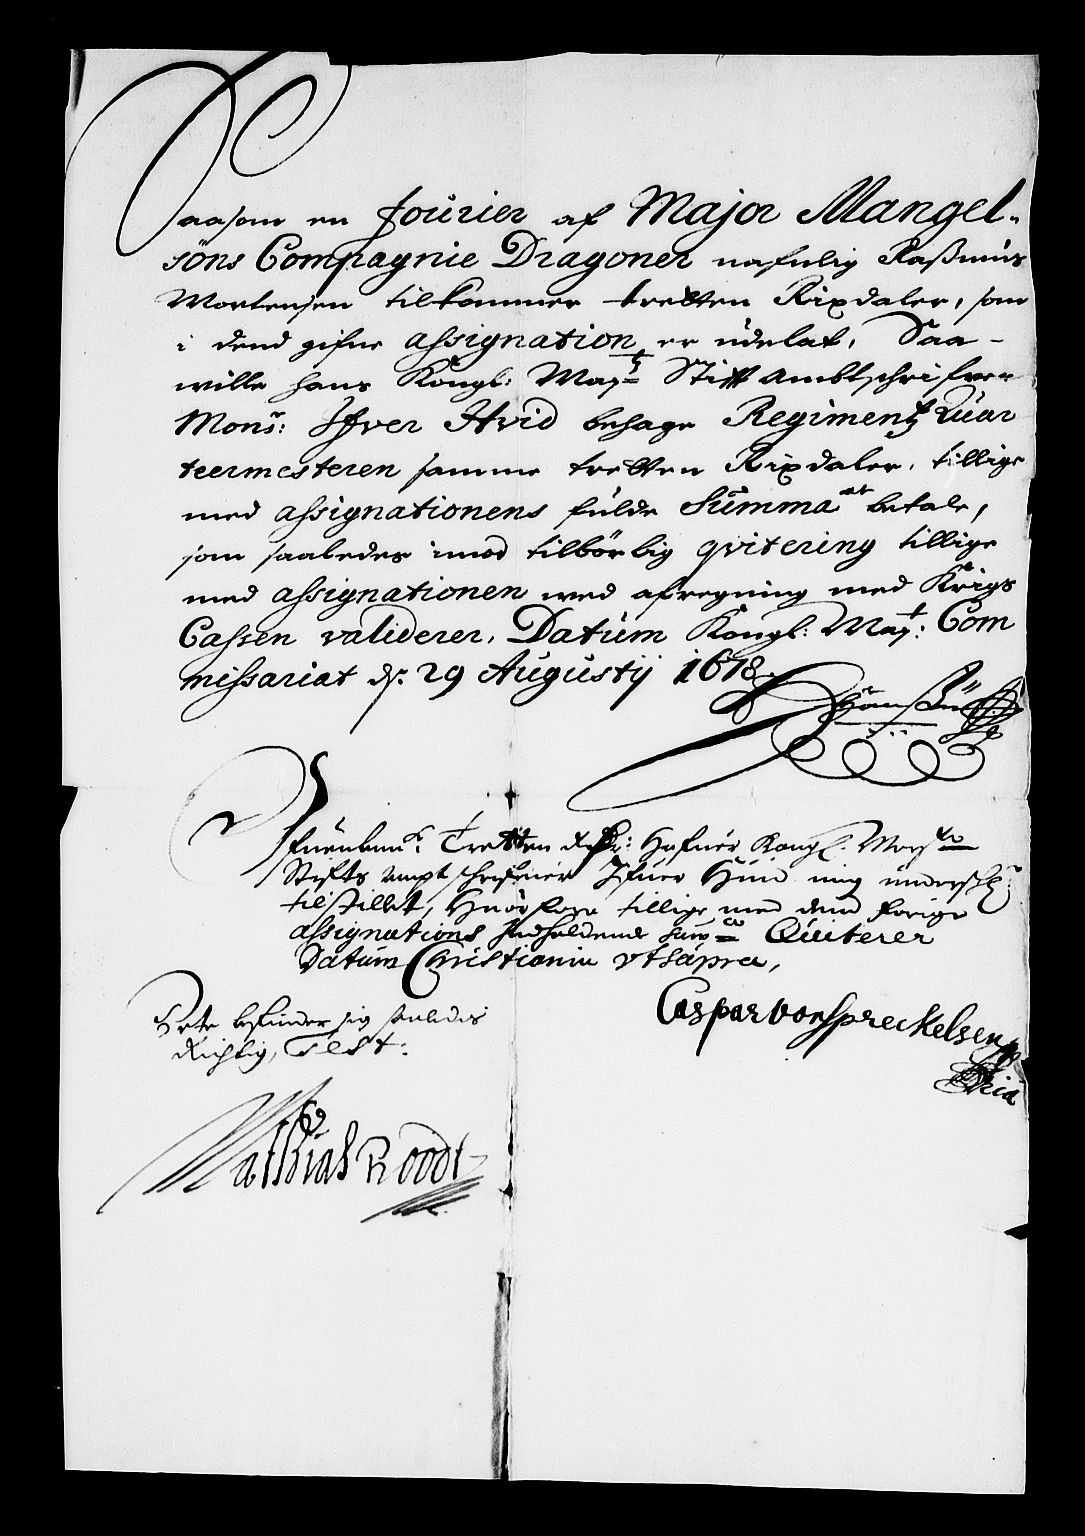 Saasom en fourier af Major Mangel-
söns Compagnie Dragoner nafnlig Raßmus
Mortensen tilkommer tretten Rixdaler, som
i dend gifne assignation er udelat, Saa-
wille hans Kongl: May:ts Stifft Ambtschrifver
Monsr: Iffver Hvid behage Regimentz Quar
teermesteren samme tretten Rixdaler, tillige
med assignationens fulde Summa at betale,
som saaledes imod tilbörlig qvitering tillige
med assignationen wed afregning med Krigs
Cassen validerer, Datum Kongl: May:t: Com
missariat ds. 29 Augustij 1678
Hans
Tretten Rdr: Hafuer Kongl: Mayts
Stifts ampt schrifuer Ifuer Huid mig underschr:
tilstillet, Huorfore tillige med dend forige
assignations Indholdende Quiterer
Datum Christiania vtsupra,
Caspar von Spreckelsen
Dete befinder sig saaledis
Richtig, Test:
Mathias Roodt